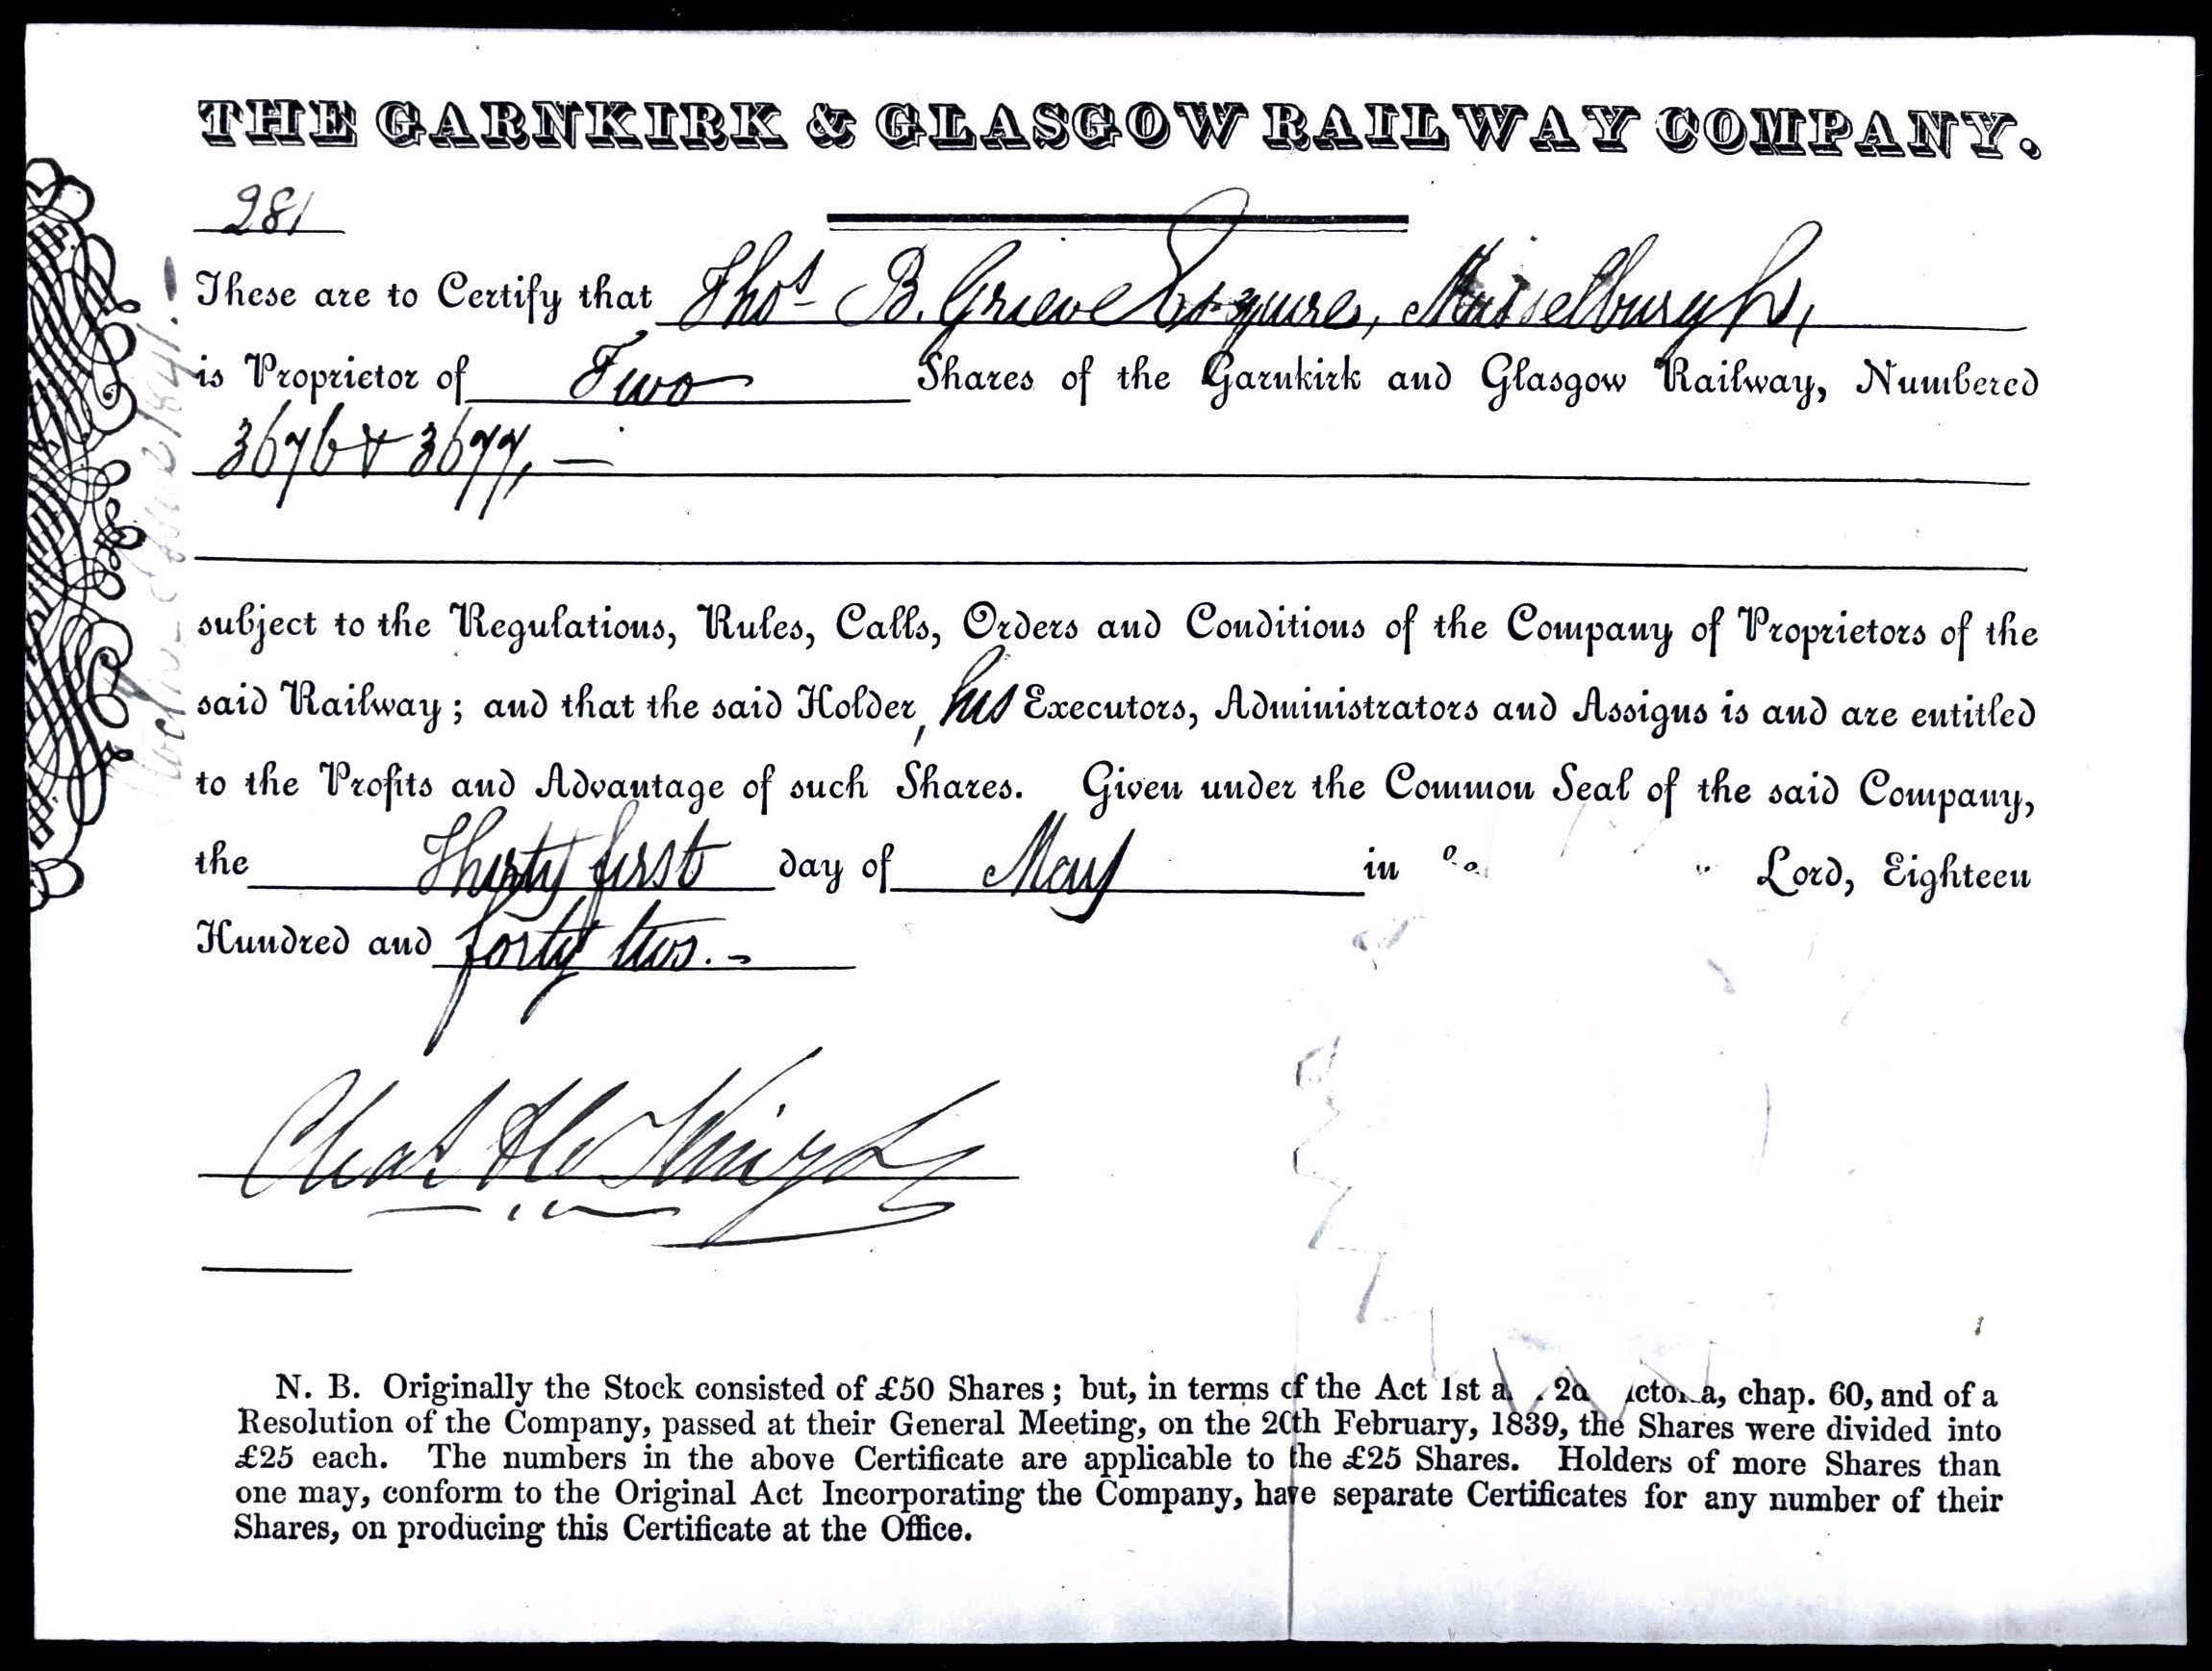 THE GARNKIRK & GLASGOW RAILWAY COMPANY.
281
These are to Certify that Thos. B. Grieve Esquire, Musselburgh,
is Proprietor of Two Shares of the Garnkirk and Glasgow Railway, Numbered
3676 & 3677, —
subject to the Regulations, Rules, Calls, Orders and Conditions of the Company of Proprietors of the
said Railway; and that the said Holder, his Executors, Administrators and Assigns is and are entitled
to the Profits and Advantage of such Shares. Given under the Common Seal of the said Company,
the Thirty first day of May in Lord, Eighteen
Hundred and forty two. -
Chas
N. B. Originally the Stock consisted of £50 Shares; but, in terms of the Act 1st a 2d ictoria, chap. 60, and of a
Resolution of the Company, passed at their General Meeting, on the 20th February, 1839, the Shares were divided into
£25 each. The numbers in the above Certificate are applicable to the £25 Shares. Holders of more Shares than
one may, conform to the Original Act Incorporating the Company, have separate Certificates for any number of their
Shares, on producing this Certificate at the Office.